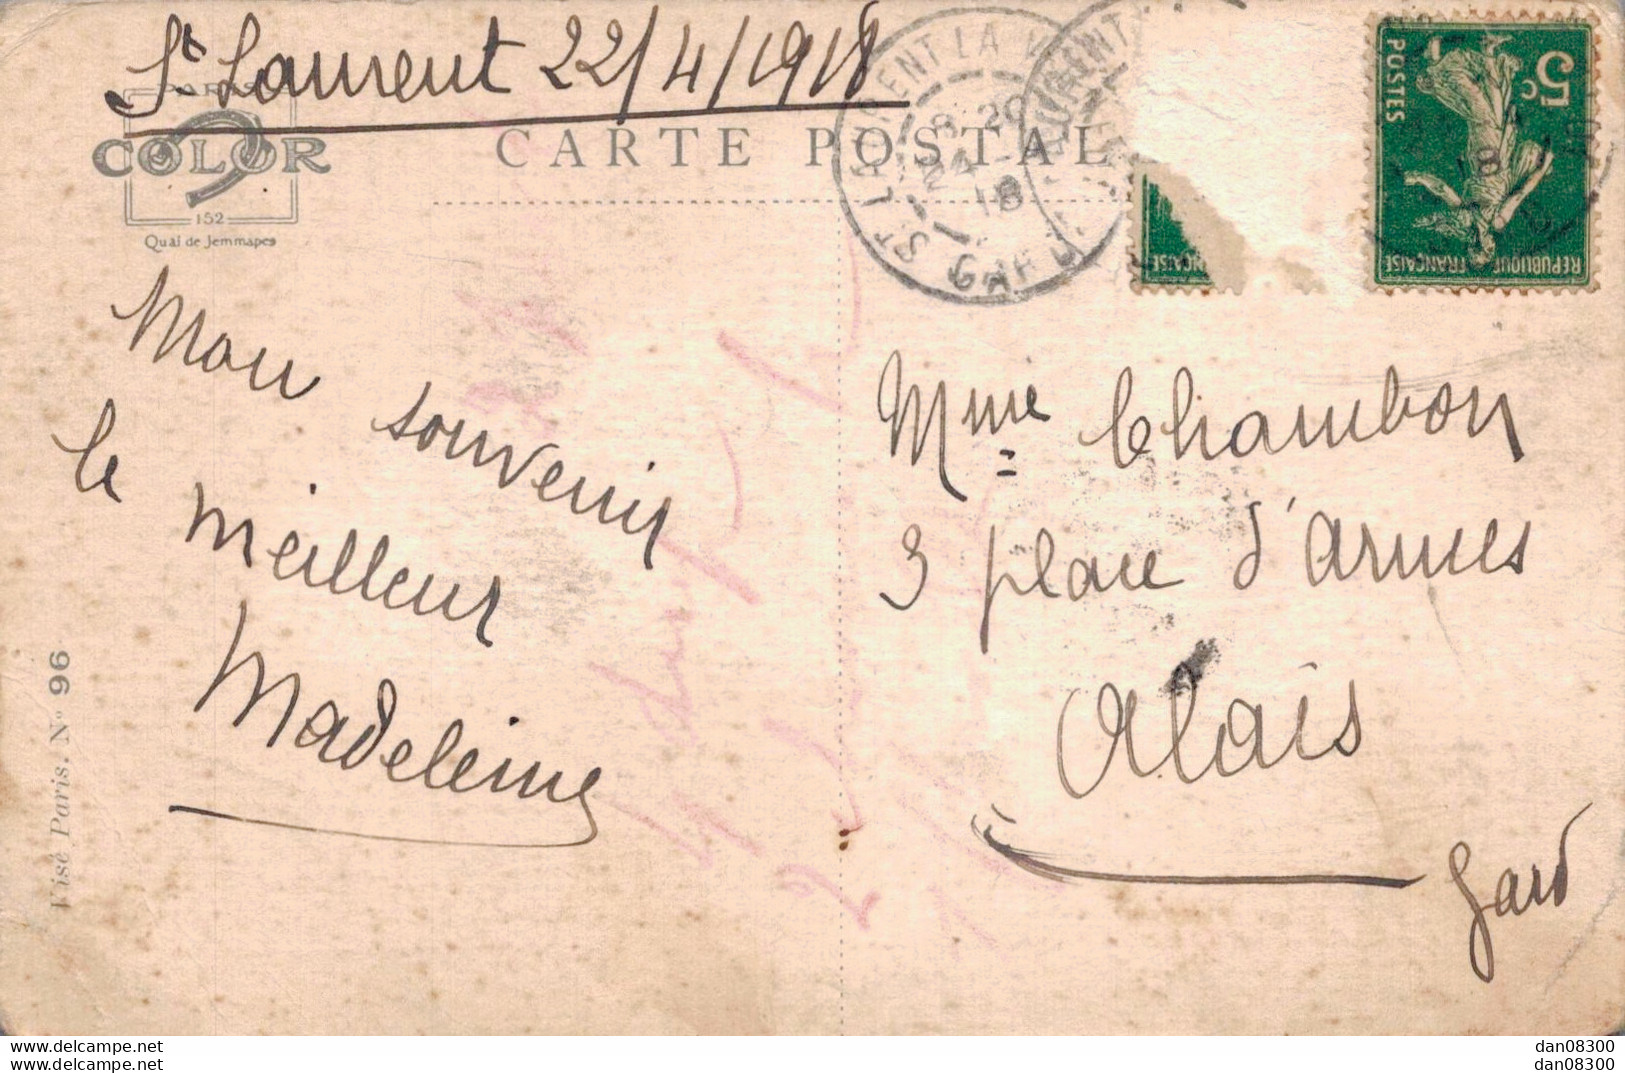 St Laurent 22/4/1918
COLOR
152
Quai de Jemmapes
CARTE POSTAL
ST LAURENT LA
GARD
18
5c
POSTES
REPUBLIQUE FRANÇAISE
Mon souvenir
le meilleur
Madeleine
Mme Chambon
3 place d'Armes
Alais
Gard
Visé Paris. No 96
dan08300
dan08300
dan08300
dan08300